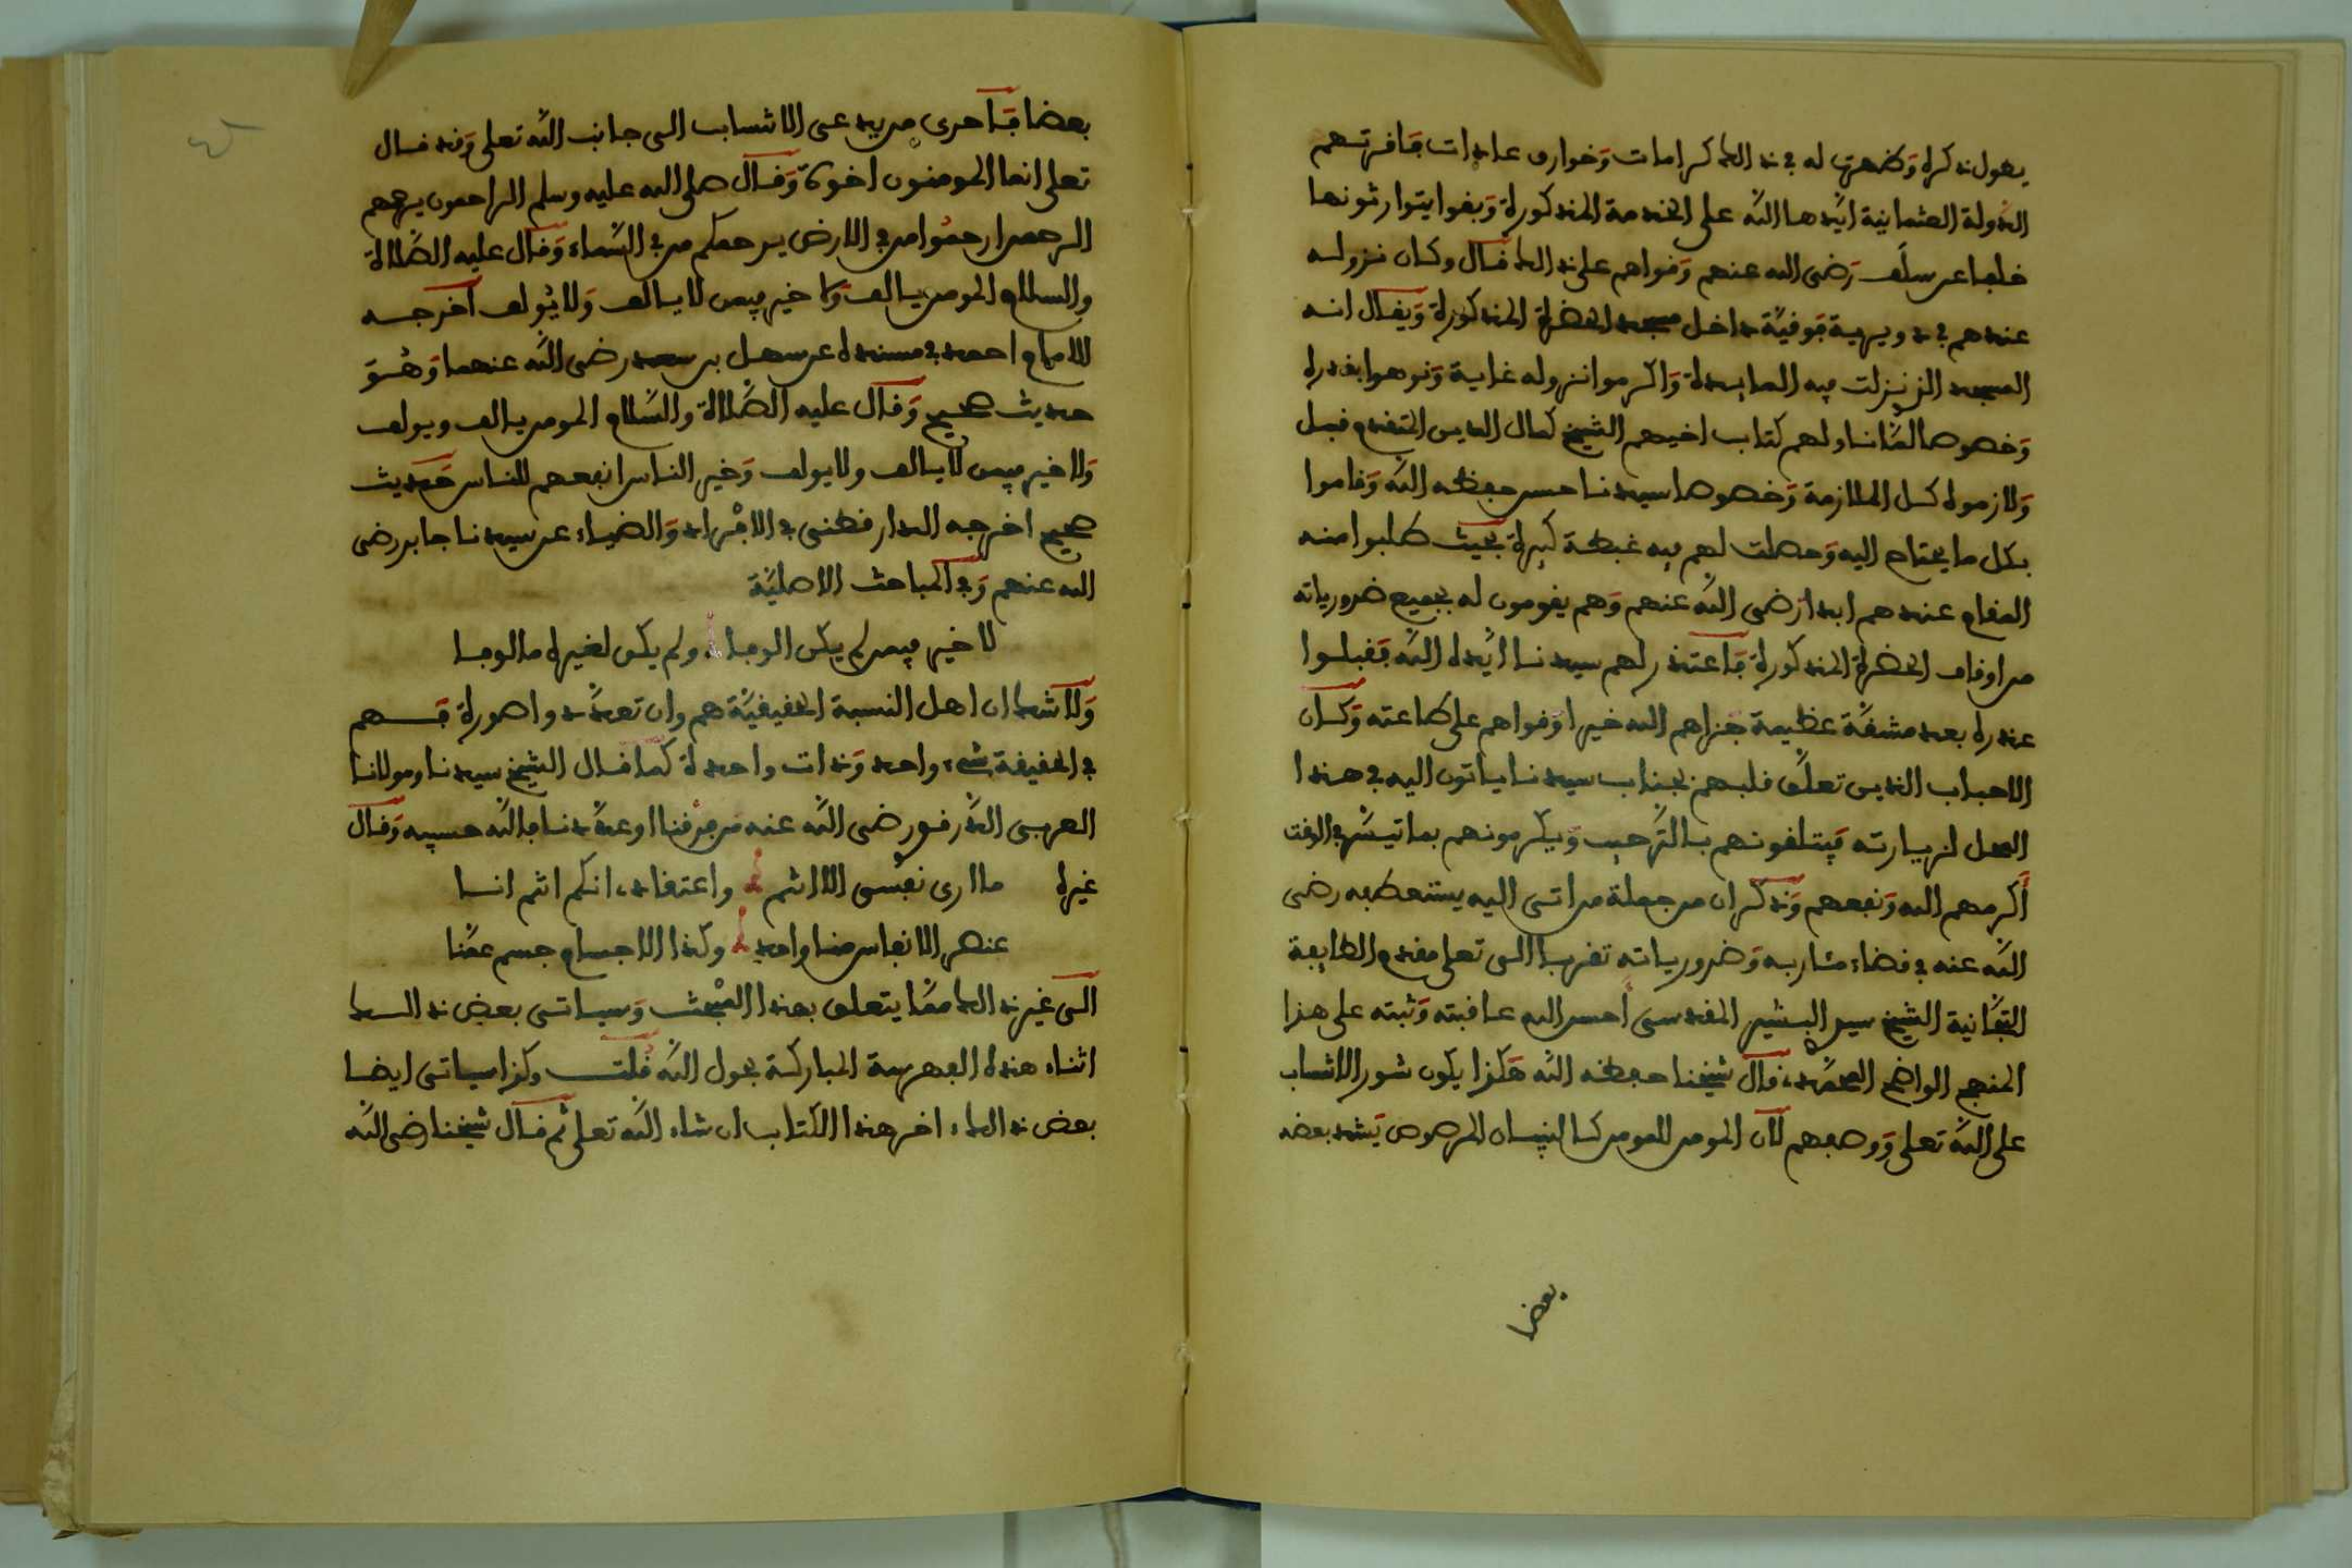 يطول ذكره وظهرت له في ذالك كرامات وخوارق عادات فاقرتهم
الدولة العثمانية ايّدها الله على الخدمة المذكورة وبقوا يتوارثونها
خلفا عن سلف رضي الله عنهم وقواهم على ذالك قال وكان نزوله
عندهم في دويرية فوقيّة داخل مسجد الحضرة المذكورة ويقال انه
المسجد الذ نزلت فيه المايدة واكرموا نزوله غاية ونوهوا بقدره
وخصوصا لمّا ناولهم كتاب اخيهم الشيخ كمال الدين المتقدم قبل
ولازموه كل الملازمة وخصوصا سيدنا حسن حفظه الله وقاموا
بكل ما يحتاج اليه وحصلت لهم فيه غبطة كبيرة بحيث طلبوا منه
المقام عندهم ابدا رضي الله عنهم وهم يقومون له بجميع ضرورياته
من اوقاف الحضرة المذكورة فاعتذر لهم سيدنا ايّده الله فقبلوا
عذره بعد مشقّة عظيمة جزاهم الله خيرا وقواهم على طاعته وكان
الاحباب الذين تعلّق قلبهم بجناب سيدنا ياتون اليه في هذا
المحل لزيارته فيتلقونهم بالترحيب ويكرمونهم بما تيسّر في الوقت
أكرمهم الله ونفعهم وذكر ان من جملة من اتى اليه يستعطفه رضي
الله عنه في قضاء مئاربه وضرورياته تقربا الى تعلى مقدم الطايفة
التجّانية الشيخ سيد البشير المقدسي أحسن الله عاقبته وثبته على هذا
المنهج الواضح المحمّد، قال شيخنا حفظه الله هكذا يكون شور الانتساب
على الله تعلى ووصفهم لان المومن للمومن كالبنيان المرصوص يشد بعضه
بعضا
بعضا فاحرى من يدعى الانتساب الى جانب الله تعلى وقد قال
تعلى انما المومنون اخوة وقال صلى الله عليه وسلم الراحمون يرحمهم
الرحمن ارحموا من في الارض يرحمكم من في السّماء وقال عليه الصّلاة
والسلام المومن يالف ولا خير فيمن لا يالف ولا يولف اخرجه
الامام احمد في مسنده عن سهل بن سعد رضي الله عنهما وهو
حديث صحيح وقال عليه الصّلاة والسّلام المومن يالف ويولف
ولا خير فيمن لا يالف ولا يولف وخير الناس انفعهم للناس حديث
صحيح اخرجه الدارقطني في الافراد والضياء عن سيدنا جابر رضي
الله عنهم وفي المباحث الاصليّة
لا خير فيمن لم يكن الوفا ولم يكن لغيره مالوفا
ولا شك ان اهل النسبة الحقيقيّة هم وان تعدّدوا صورة فهم
في الحقيقة شيء واحد وذات واحدة كما قال الشيخ سيدنا ومولانا
العربي الدّرقو رضي الله عنه من فرقنا او عدّدنا فالله حسيبه وقال
غيره ما ارى نفسي الا انتم واعتقاد، انكم انتم انا
عنصر الانفاس منا واحد وكذا الاجسام جسم عمّنا
الى غير ذالك ممّا يتعلق بهذا المبحث وسياتي بعض ذالك
اثناء هذه الفهرسة المباركة بحول الله قلت وكذا سياتي ايضا
بعض ذالك، اخر هذا الكتاب ان شاء الله تعلى ثم قال شيخنا رضي الله